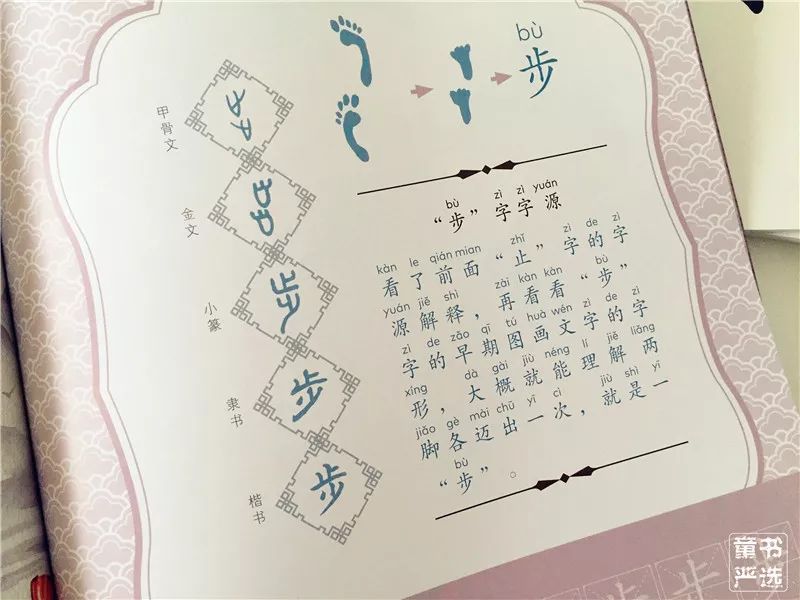 bù
步
甲骨文
金文
小篆
隶书
楷书
步
步
bù zì zì yuán
“步”字字源
kàn le qián mian zhǐ zì de zì
看了前面“止”字的字
yuán jiě shì zài kàn kàn bù
源解释，再看看“步”
zì de zǎo qī tú huà wén zì de zì
字的早期图画文字的字
xíng dà gài jiù néng lǐ jiě liǎng
形，大概就能理解两
jiǎo gè mài chū yī cì jiù shì yī
脚各迈出一次，就是一
bù
“步”。
步 步
童书
严选